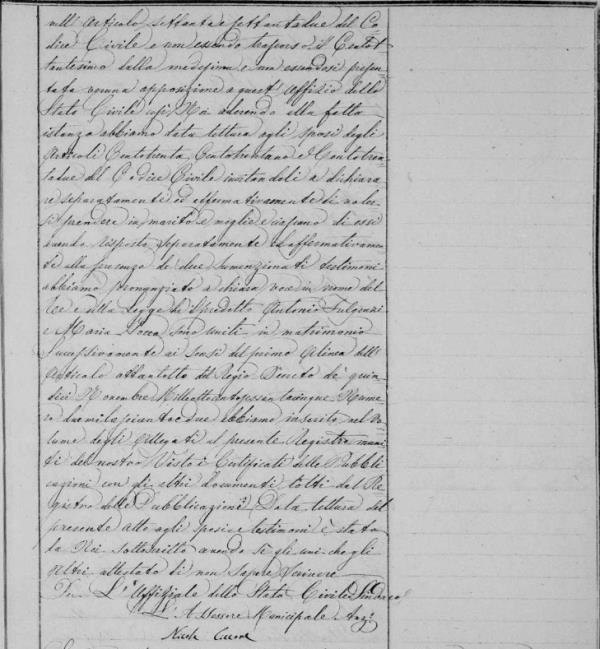 nell' Articolo settanta e settantadue del Co-
dice Civile e non essendo trascorso il Centot-
tantesimo dalla medesima e non essendosi presen-
tata veruna opposizione a quest' Uffizio dello
Stato Civile Noi aderendo alla fatta
istanza abbiamo data lettura agli sposi degli
Articoli Centotrenta, Centotrentuno e Centotren-
tadue del Codice Civile invitandoli a dichiara-
re separatamente ed affermativamente di voler-
si prendere in marito e moglie e ciascuno di essi
avendo risposto separatamente ed affermativamen-
te alla presenza de' due sumenzionati testimoni
abbiamo pronunziato a chiara voce in nome del
Re e della Legge che i predetti Antonio
e Maria sono uniti in matrimonio
Successivamente ai sensi del primo Alinea dell'
Articolo ottantotto del Regio Decreto de' quin-
dici Novembre Milleottocentosessantacinque Nume-
ro duemilaseicentodue abbiamo inserito nel Vo-
lume degli Allegati al presente Registro muni-
ti del nostro Visto i Certificati delle Pubbli-
cazioni con gli altri documenti tolti del Re-
gistro delle Pubblicazioni. Data lettura del
presente atto agli sposi e testimoni è stato
da Noi sottoscritto avendo sì gli uni che gli
altri attestato di non sapere scrivere
L'Uffiziale dello Stato Civile Sindaco
L'Assessore Municipale Anz:
Nicola